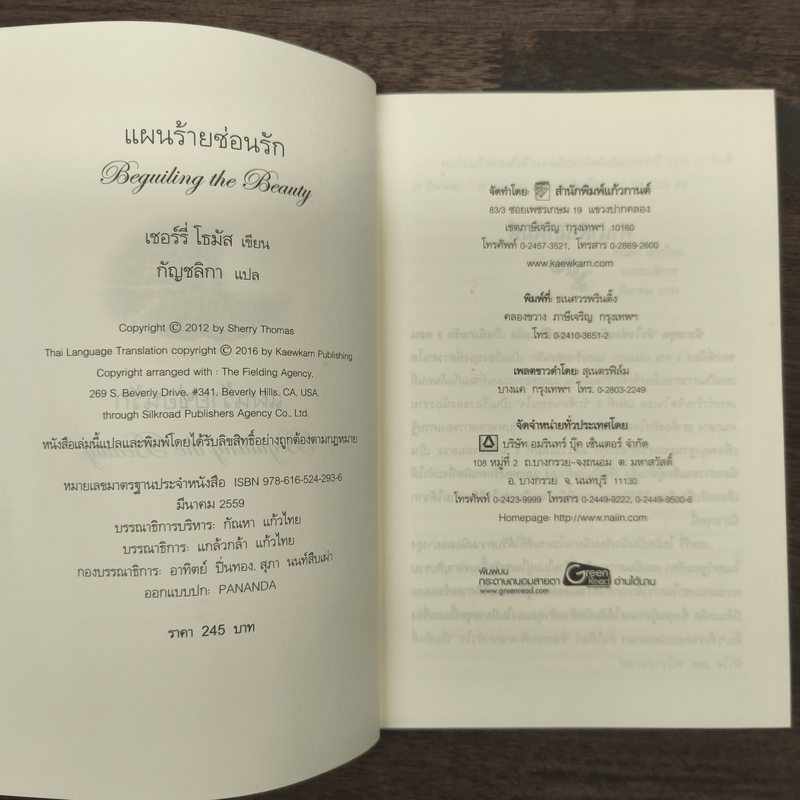 แผนร้ายซ่อนรัก
Beguiling the Beauty
เชอร์รี่ โธมัส เขียน
กัญชลิกา แปล
Copyright © 2012 by Sherry Thomas
Thai Language Translation copyright © 2016 by Kaewkarn Publishing
Copyright arranged with : The Fielding Agency,
269 S. Beverly Drive, #341, Beverly Hills, CA. USA.
through Silkroad Publishers Agency Co., Ltd.
หนังสือเล่มนี้แปลและพิมพ์โดยได้รับลิขสิทธิ์อย่างถูกต้องตามกฎหมาย
หมายเลขมาตรฐานประจำหนังสือ ISBN 978-616-524-293-6
มีนาคม 2559
บรรณาธิการบริหาร: กัณหา แก้วไทย
บรรณาธิการ: แกล้วกล้า แก้วไทย
กองบรรณาธิการ: อาทิตย์ ปิ่นทอง, สุภา นนท์สืบเผ่า
ออกแบบปก: PANANDA
ราคา 245 บาท
จัดทำโดย: สำนักพิมพ์แก้วกานต์
83/3 ซอยเพชรเกษม 19 แขวงปากคลอง
เขตภาษีเจริญ กรุงเทพฯ 10160
โทรศัพท์ 0-2457-3521, โทรสาร 0-2869-2600
www.kaewkarn.com
พิมพ์ที่: ธเนศวรพรินติ้ง
คลองขวาง ภาษีเจริญ กรุงเทพฯ
โทร. 0-2410-3651-2
เพลตขาวดำโดย: สุเนตรฟิล์ม
บางแค กรุงเทพฯ โทร. 0-2803-2249
จัดจำหน่ายทั่วประเทศโดย
บริษัท อมรินทร์ บุ๊ค เซ็นเตอร์ จำกัด
108 หมู่ที่ 2 ถ.บางกรวย-จงถนอม ต. มหาสวัสดิ์
อ. บางกรวย จ. นนทบุรี 11130
โทรศัพท์ 0-2423-9999 โทรสาร 0-2449-9222, 0-2449-9500-6
Homepage: http://www.naiin.com
พิมพ์บน
กระดาษถนอมสายตา Green Read อ่านได้นาน
www.greenread.com